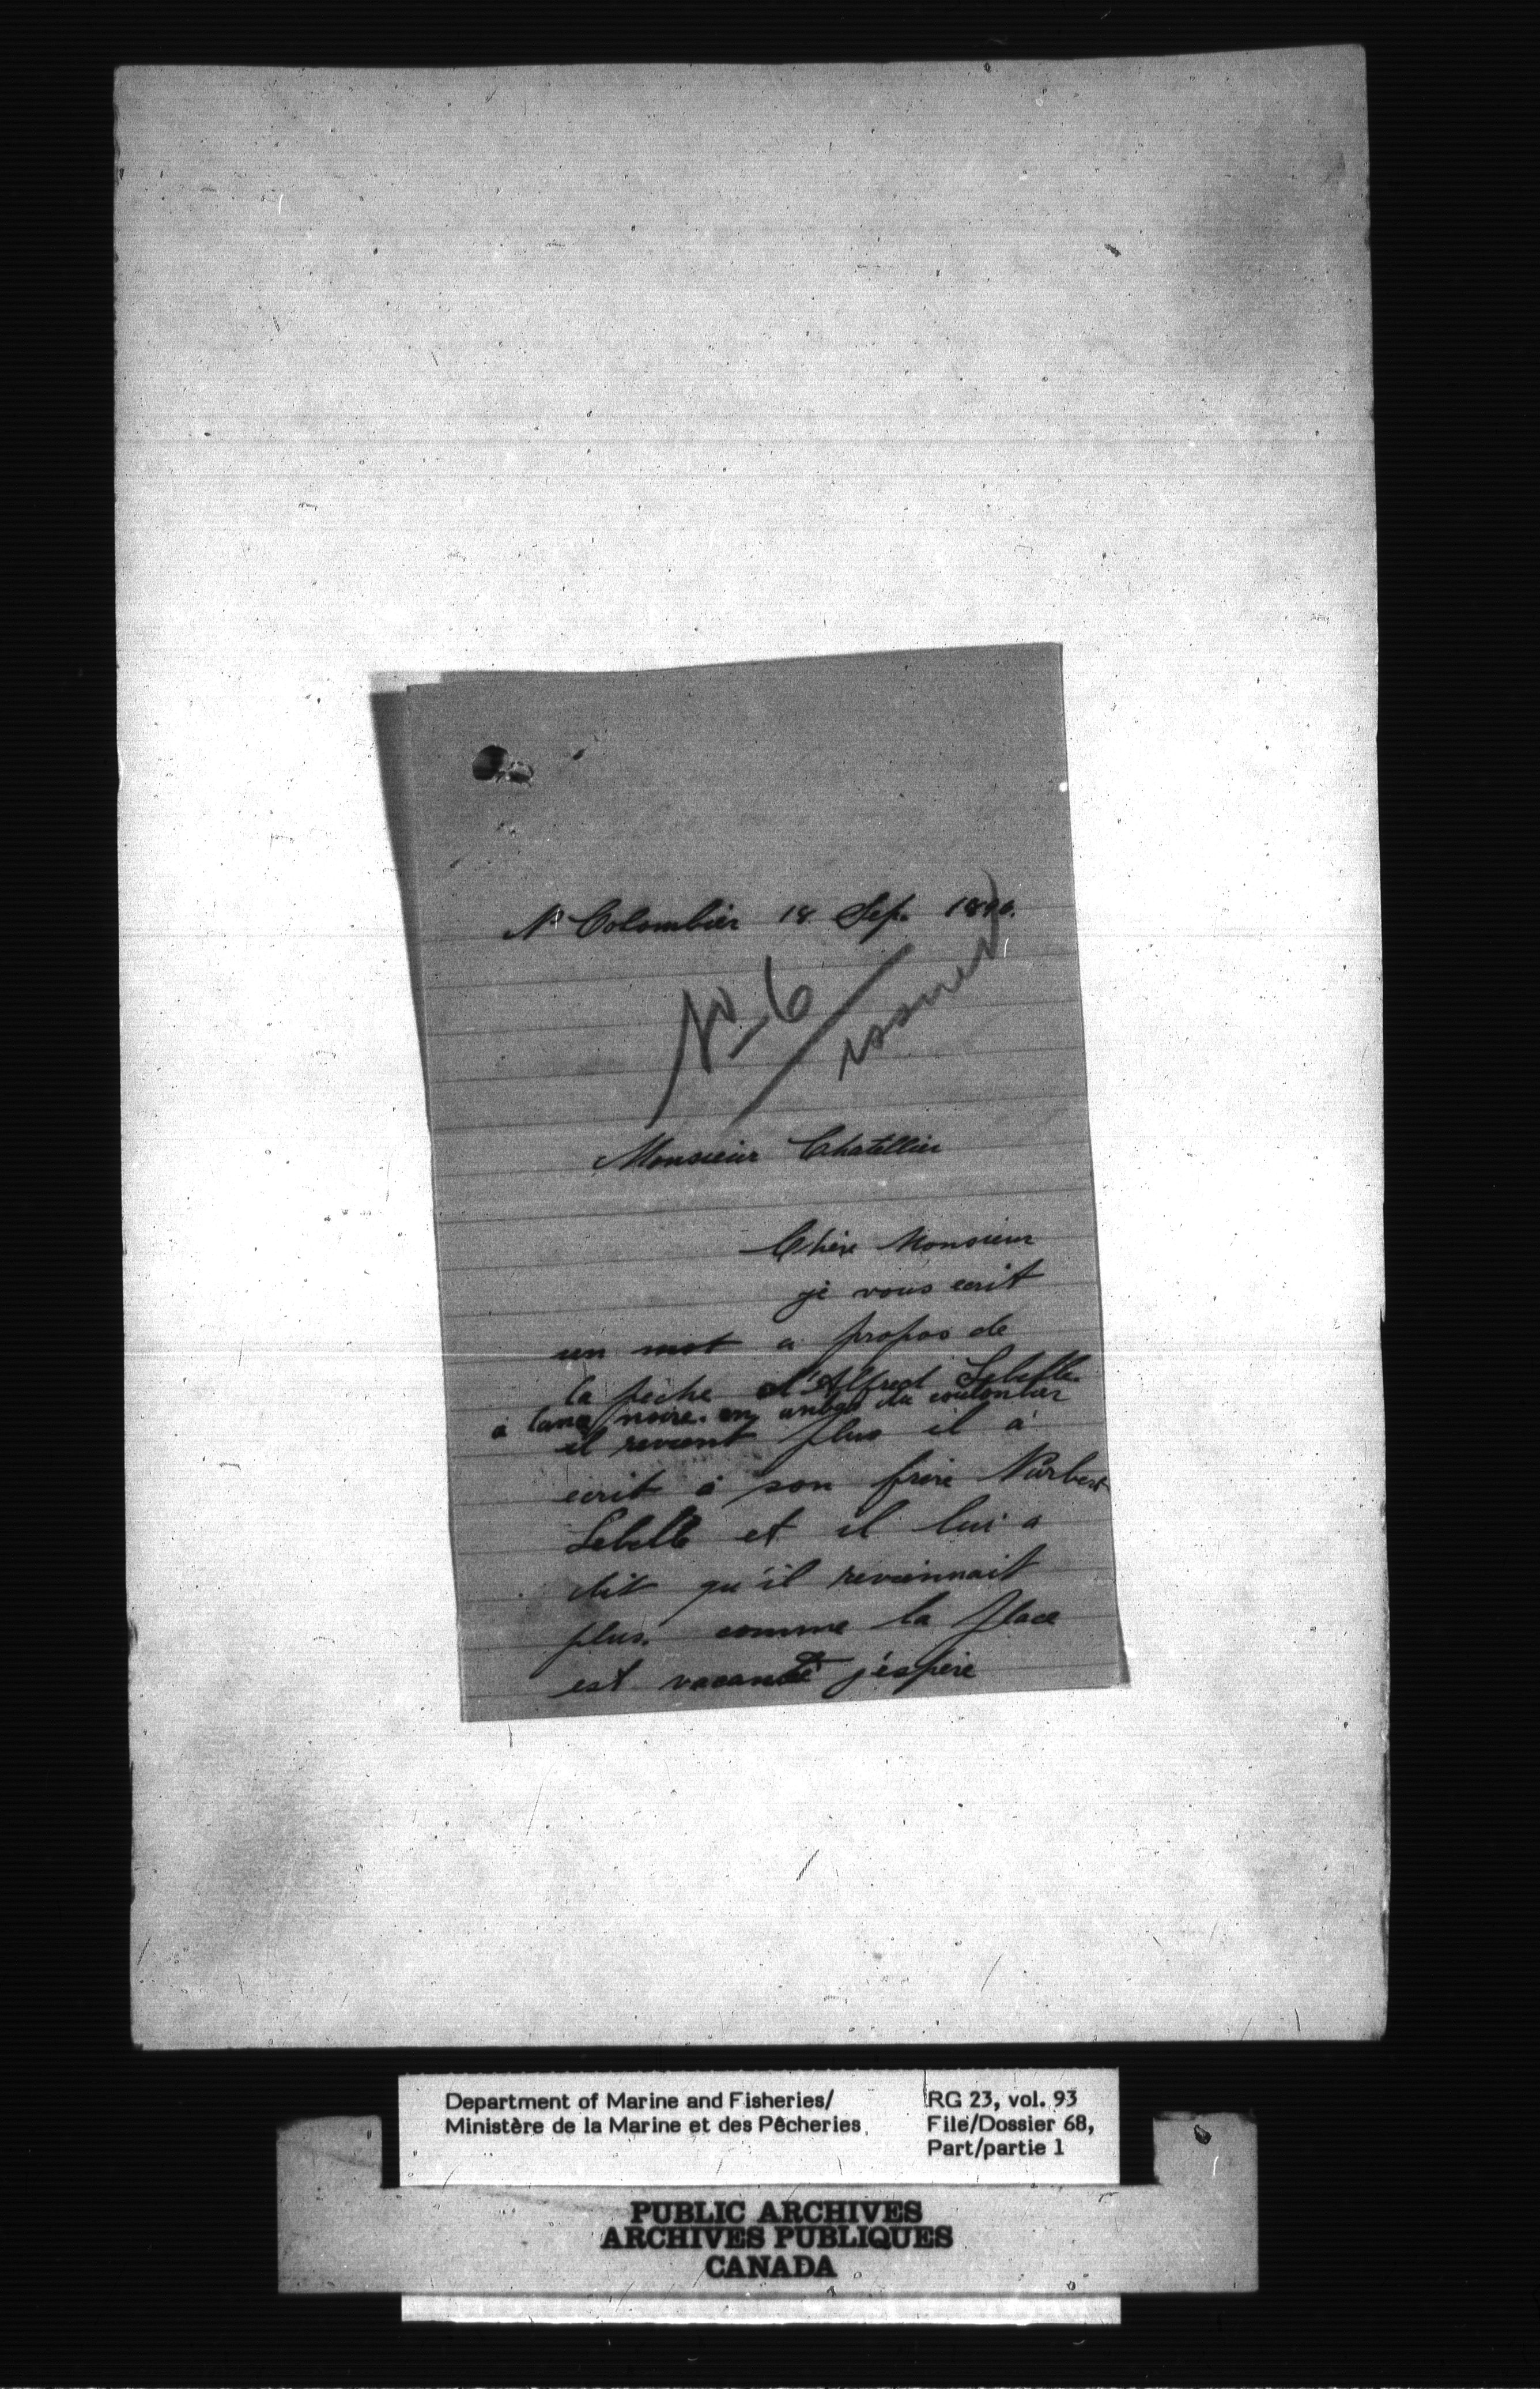 N° Colombier 18 Sep. 1890.
No. 6
issued
Monsieur Chatellier
Chère Monsieur
je vous ecrit
un mot a propos de
la pèche d'Alfred Lebelle
à lance noire. en anbas du coulonbier
il revient plus il a
ecrit à son frère Nurbert
Lebelle et il lui a
dit qu'il reviennait
plus. comme la place
est vacante j'éspère
Department of Marine and Fisheries/
Ministère de la Marine et des Pêcheries
RG 23, vol. 93
File/Dossier 68,
Part/partie 1
PUBLIC ARCHIVES
ARCHIVES PUBLIQUES
CANADA